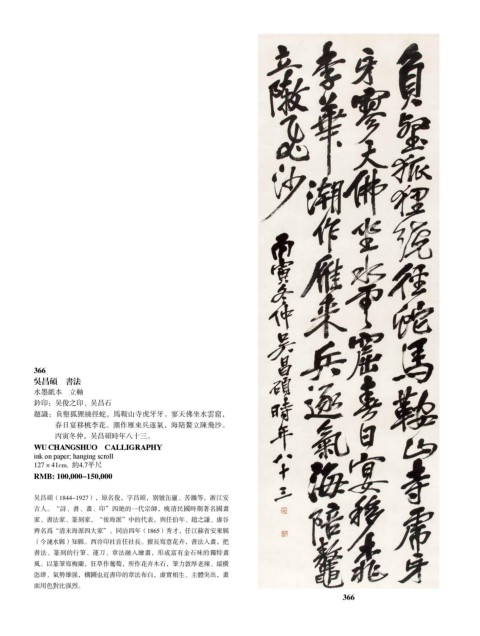 負壑狐狸繞徑蛇馬鞍山寺虎牙
牙寥天佛坐水雲窟春日宴移桃
李華潮作雁來兵逐氣海陪鰲
立飛沙
丙寅冬仲吳昌碩時年八十三
366
吳昌碩 書法
水墨紙本 立軸
鈐印:吳俊之印、吳昌石
題識:負壑狐狸繞徑蛇、馬鞍山寺虎牙牙。寥天佛坐水雲窟、
春日宴移桃李花。潮作雁來兵逐氣、海陪鰲立飛沙。
丙寅冬仲,吳昌碩時年八十三。
WU CHANGSHUO CALLIGRAPHY
ink on paper; hanging scroll
127×41cm. 約4.7平尺
RMB: 100,000–150,000
吳昌碩(1844–1927),原名俊,字昌碩,別號缶廬、苦鐵等,浙江安
吉人。“詩、書、畫、印”四絕的一代宗師,晚清民國時期著名國畫
家、書法家、篆刻家,“後海派”中的代表,與任伯年、趙之謙、虛谷
齊名爲“清末海派四大家”。同治四年(1865)秀才,任江蘇省安東縣
(今漣水縣)知縣。西泠印社首任社長。擅長寫意花卉,書法入畫,把
書法、篆刻的行筆、運刀、章法融入繪畫,形成富有金石味的獨特畫
風。以篆筆寫梅蘭,狂草作葡萄,所作花卉木石,筆力敦厚老辣、縱橫
恣肆、氣勢雄強,構圖也近書印的章法布白,虛實相生、主體突出,畫
面用色對比強烈。
366